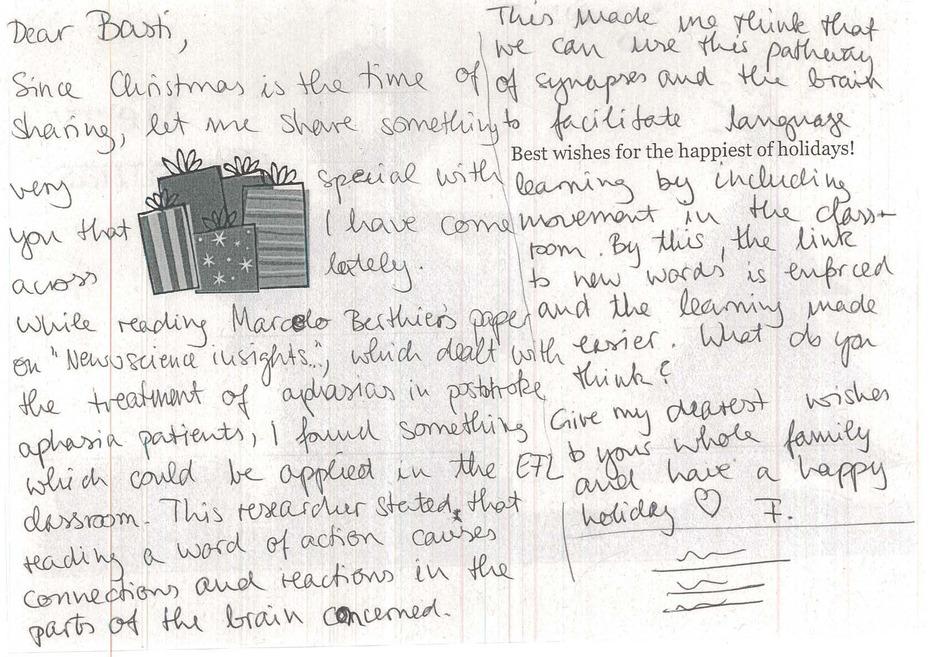 Dear Basti,
Since Christmas is the time of
sharing, let me share something
very special with
you that I have come
across lately.
While reading Marcelo Berthier's paper
on "Neuroscience insights...", which dealt with
the treatment of aphasias in poststroke
aphasia patients, I found something
which could be applied in the EFL
classroom. This researcher stated, that
reading a word of action causes
connections and reactions in the
parts of the brain concerned.
This made me think that
we can use this pathway
of synapses and the brain
to facilitate language
Best wishes for the happiest of holidays!
learning by including
movement in the class-
room. By this, the link
to new words is enforced
and the learning made
easier. What do you
think?
Give my dearest wishes
to your whole family
and have a happy
holiday ♡ F.